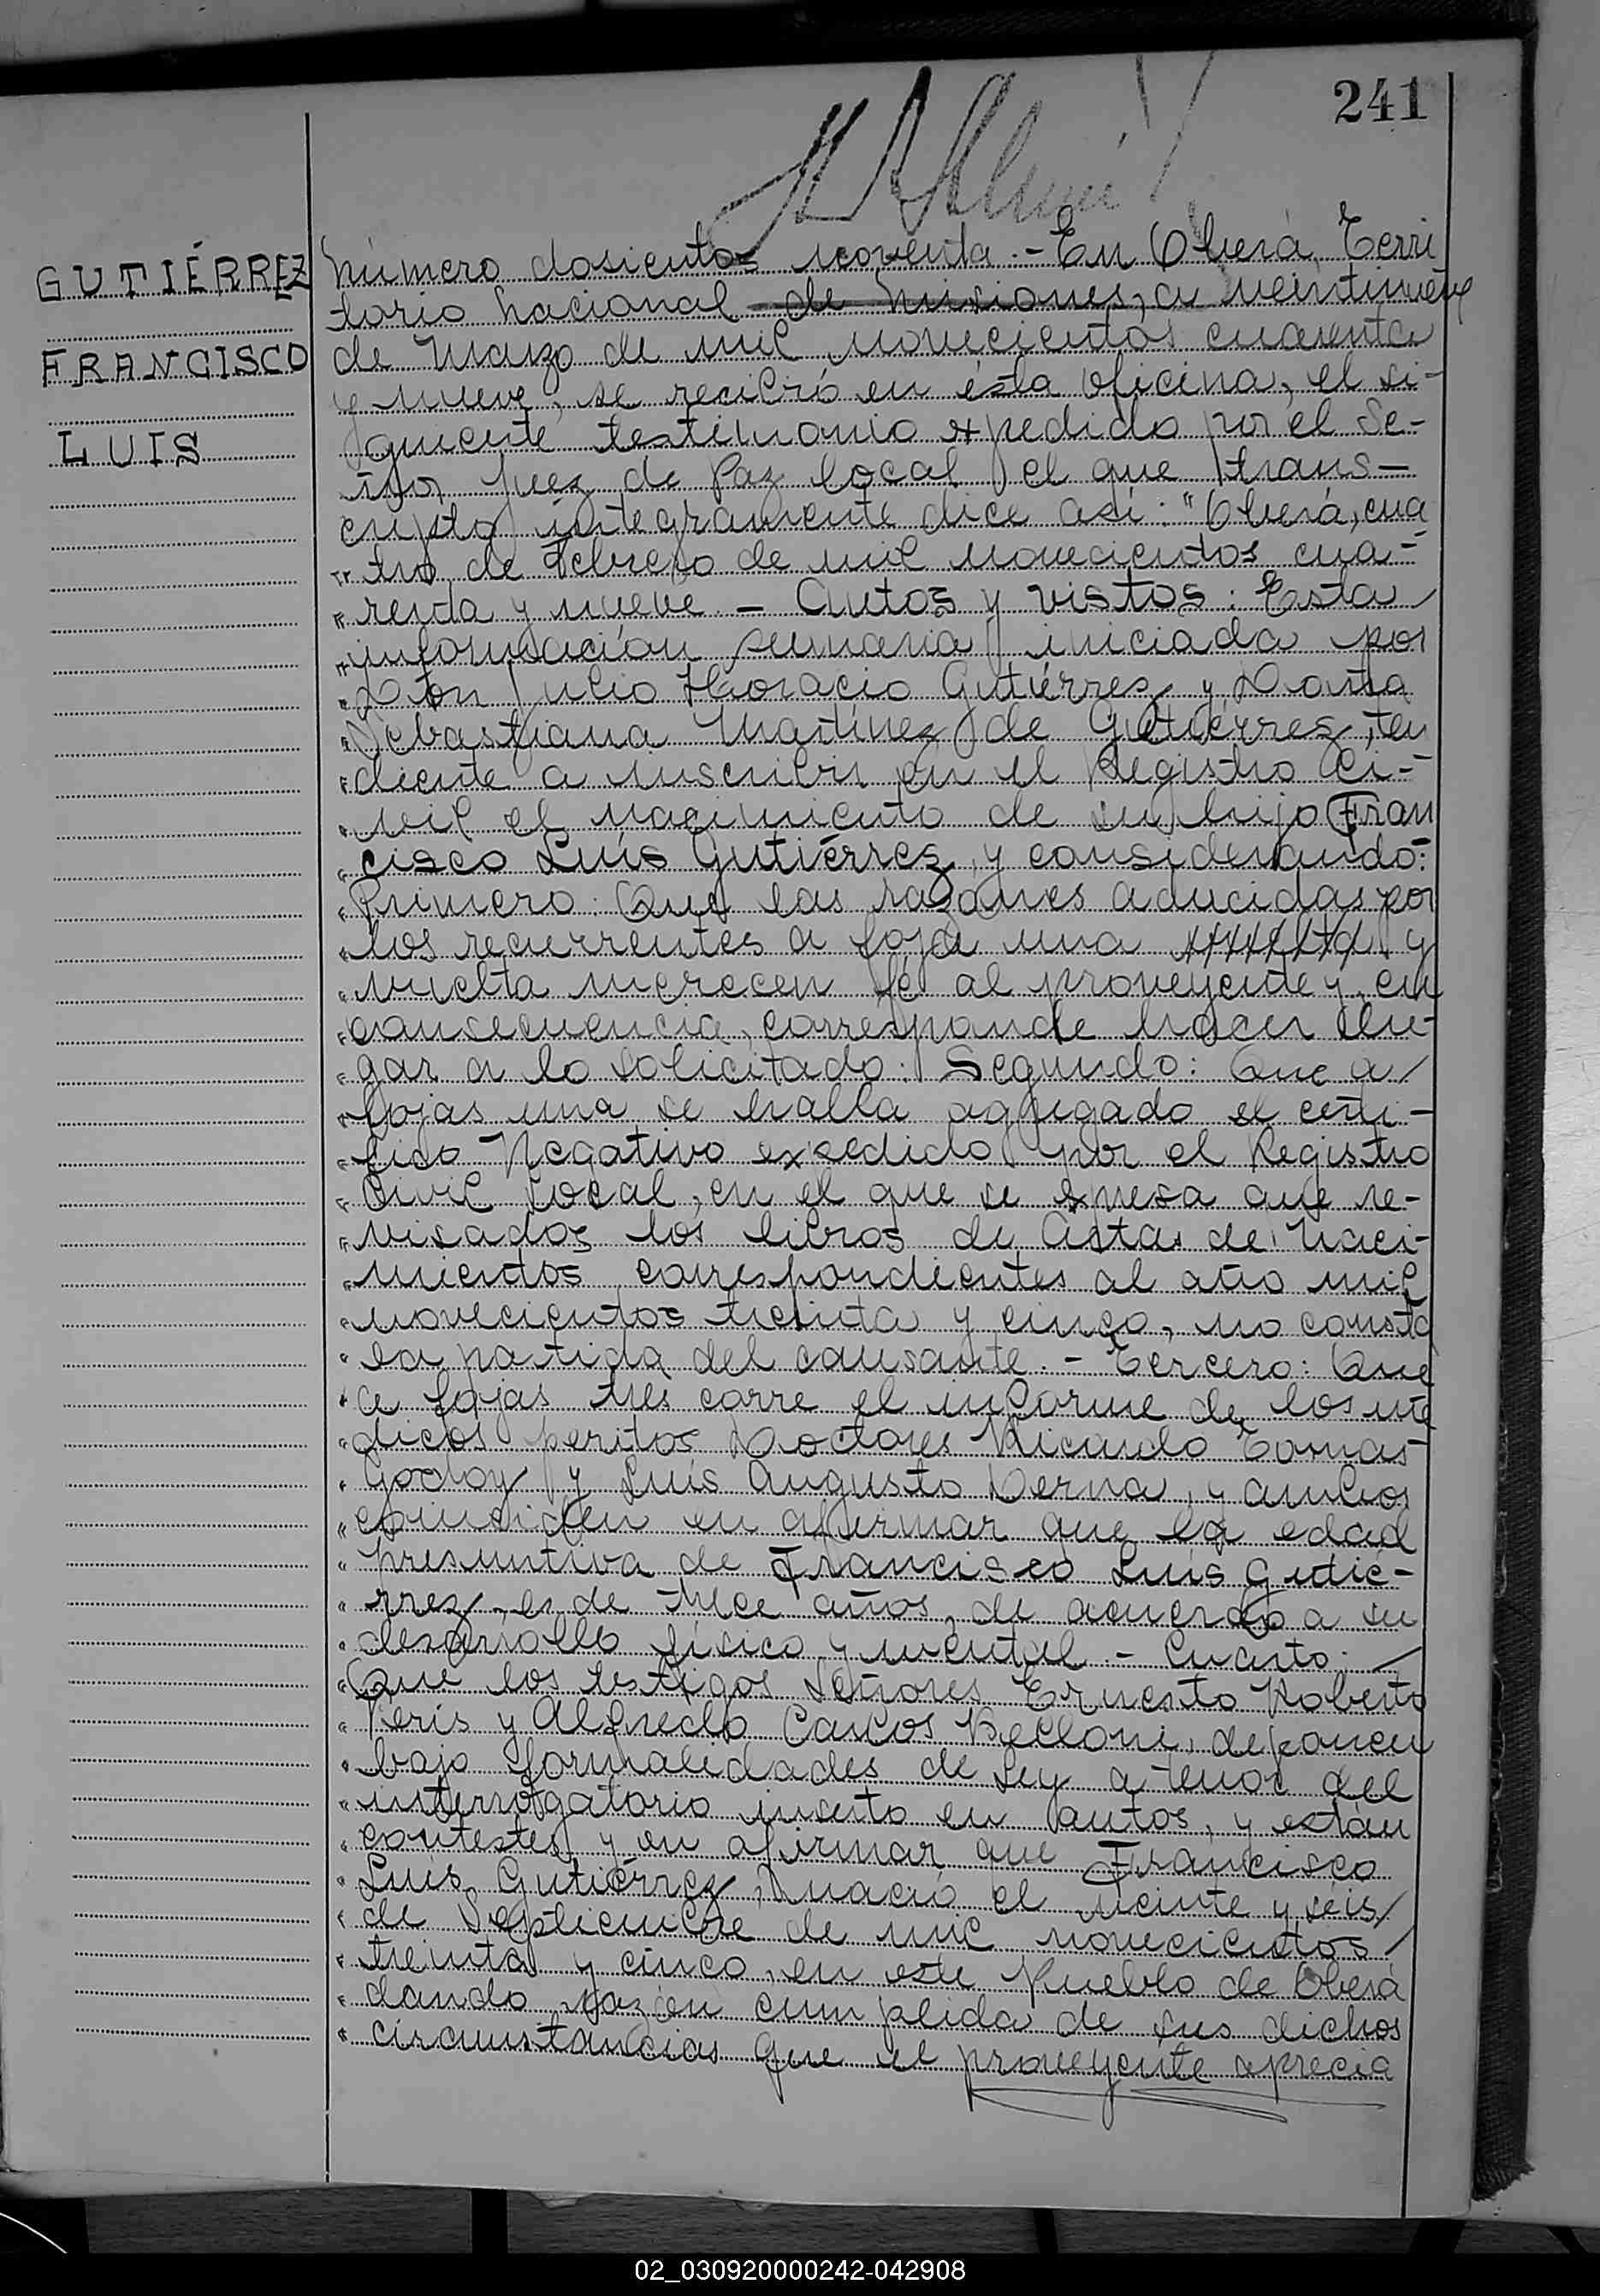 241
GUTIÉRREZ
FRANCISCO
LUIS
Número dosientos noventa.- En Oberá, Terri
torio Nacional de Misiones, a veintinueve
de Marzo de mil novecientos cuarenta
y nueve, se recibió en ésta oficina, el si-
guiente testimonio expedido por el Se-
ñor Juez de Paz local el que trans-
cripto íntegramente dice así: "Oberá, cua
" tro de Febrero de mil novecientos cua-
" renta y nueve.- Autos y vistos: Esta
" información sumaria iniciada por
" Don Julio Horacio Gutiérrez y Doña
" Sebastiana Martinez de Gutiérrez, ten
" diente a inscribir en el Registro Ci-
" vil el nacimiento de su hijo Fran
" cisco Luis Gutiérrez, y considerando:
" Primero: Que las razones aducidas por
" los recurrentes a foja una y
" vuelta merecen fé al proveyente y, en
" consecuencia, corresponde hacer lu-
" gar a lo solicitado: Segundo: Que a
" fojas una se halla agregado el certi-
" fico Negativo expedido por el Registro
" Civil local, en el que se expresa que re-
" visados los libros de Actas de Naci-
" mientos correspondientes al año mil
" novecientos treinta y cinco, no consta
" la partida del causante.- Tercero: Que
" a fojas tres corre el informe de los mé
" dicos peritos Doctores Ricardo Tomas
" Godoy y Luis Augusto Derna, y ambos
" coinsiden en afirmar que la edad
" presuntiva de Francisco Luis Gutié-
" rrez, es de trece años, de acuerdo a su
" desarrollo físico y mental.- Cuarto:
" Que los testigos Señores Ernesto Roberto
" Peris y Alfredo Carlos Belloni, deponen
" bajo formalidades de Ley a tenor del
" interrogatorio inserto en autos, y están
" contestes y en afirmar que Francisco
" Luis Gutiérrez, nació el veinte y séis
" de Septiembre de mil novecientos
" treinta y cinco, en este Pueblo de Oberá
" dando razón cumplida de sus dichos
" circunstancias que el proveyente aprecia
02_030920000242-042908